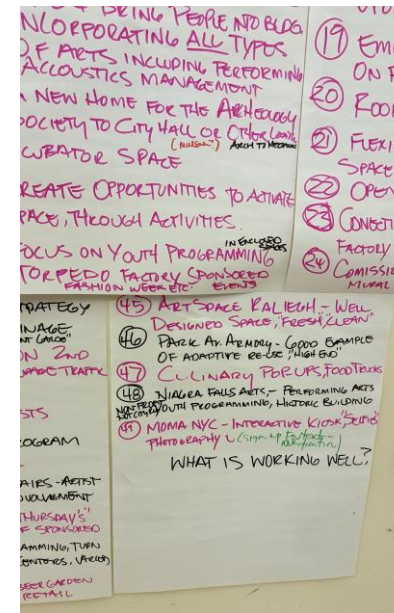 BRING PEOPLE NTO BLDG.
NCORPORATING ALL TYPES
OF ARTS INCLUDING PERFORMING
ACCOUSTICS MANAGEMENT
NEW HOME FOR THE ARHEOLOGY
SOCIETY TO CITY HALL OR OTHER
(museum) ARCH TO
CUBATOR SPACE
REATE OPPORTUNITIES TO ACTIVATE
PACE, THROUGH ACTIVITIES.
IN ENCLOSED
SPACES
OCUS ON YOUTH PROGRAMMING
TORPEDO FACTORY SPONSORED
FASHION WEEK ETC. EVENTS
19
ON
20
21 FLEXI
SPACE
22 OPEN
23
FACTORY
24 COMISSI
MURAL
RATEGY
INAGE
NT GARDE"
ON 2ND
TRAFFIC
STS
OGRAM
AIRS - ARTIST
THURSDAY'S"
F SPONSORED
AMMING, TURN
CENTERS, VARIED
BEER GARDEN
RETAIL
45 ARTSPACE RALIEGH - WELL
DESIGNED SPACE, "FRESH", CLEAN"
46 PARK AV. ARMORY - GOOD EXAMPLE
OF ADAPTIVE RE-USE "HIGH END"
47 CULINARY POP UPS, FOOD TRUCKS
48 NIAGRA FALLS ARTS, - PERFORMING ARTS
YOUTH PROGRAMMING, HISTORIC BUILDING
49 MOMA NYC - INTERACTIVE KIOSK,
PHOTOGRAPHY (sign up
WHAT IS WORKING WELL?